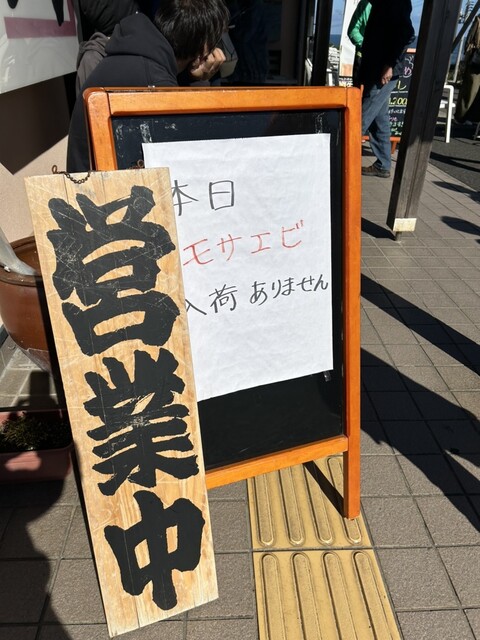 営業中
本日
モサエビ
入荷 ありません